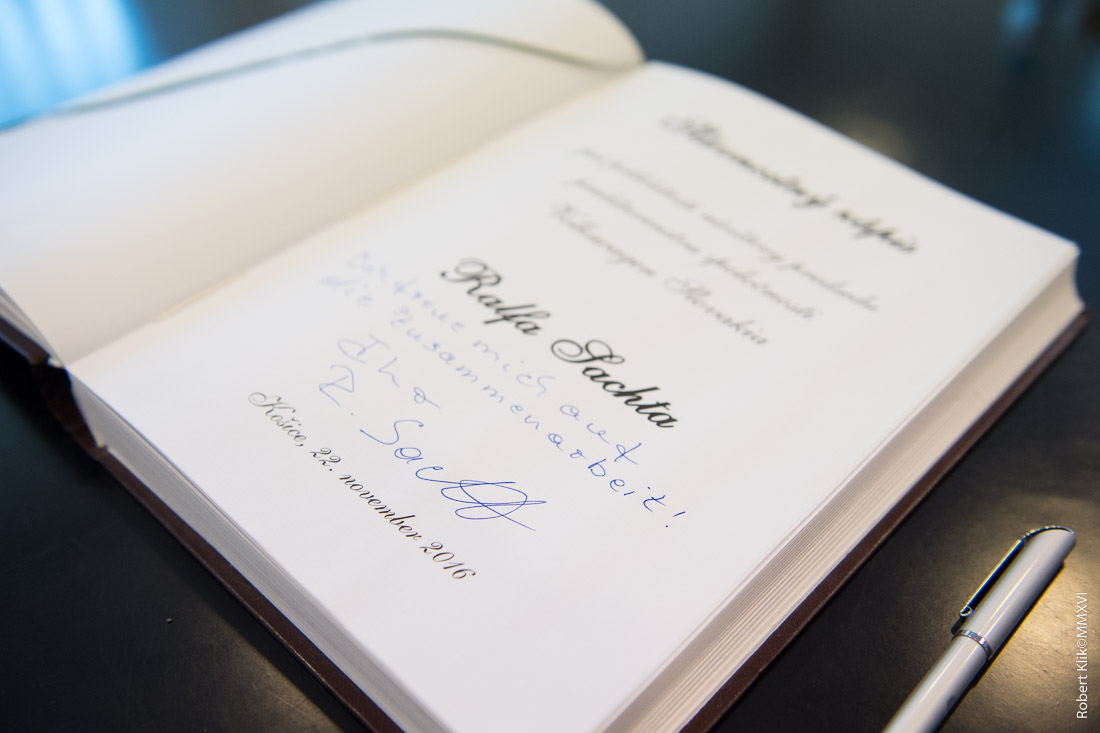 Slávnostný zápis
pri príležitosti návštevy predsedu
predstavenstva spoločnosti
Volkswagen Slovakia
Ralfa Sachta
Ich freue mich auf
die Zusammenarbeit!
Ihr
R. Sacht
Košice, 22. november 2016
Robert Klik©MMXVI